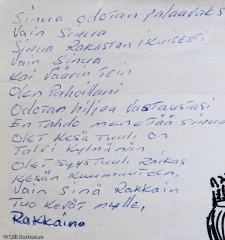 Sinua odotan palaavaks
Vain Sinua
Sinua Rakastan ikuisesti
Vain Sinua
Kai väärin tein
Olen Pahoillani
Odotan hiljaa Vastaustasi
En tahdo menettää Sinua
Olet kesä tuuli on
Talvi kylmänin
Olet Syystuuli Raikas
Kesän kuumuuteen,
Vain Sinä Rakkain
Tuo kevät mulle,
Rakkain